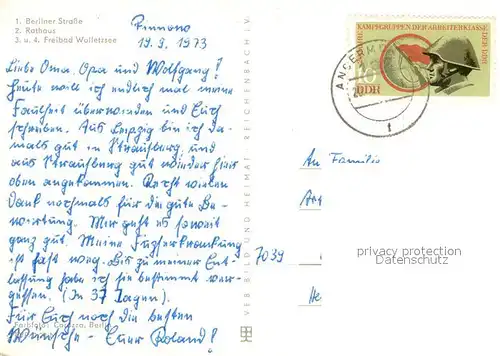 1. Berliner Straße
2. Rathaus
3. u. 4. Freibad Wolletzsee
19. 9. 1973
Liebe Oma, Opa und Wolfgang!
Heute will ich endlich mal meine
Faulheit überwinden und Euch
schreiben. Aus Leipzig bin ich da-
mals gut in Strausburg und
aus Strausburg gut wieder hier
oben angekommen. Recht vielen
Dank nochmals für die gute Be-
wirtung. Mir geht es soweit
ganz gut. Meine Fusserkrankung
ist fast weg. Bis zu meiner Ent-
lassung habe ich sie bestimmt ver-
gessen. (In 37 Tagen).
Für Euch noch die besten
Wünsche - Euer Roland!
Farbfotos: Berlin
VEB BILD UND HEIMAT REICHENBACH I. V.
KAMPFGRUPPEN DER ARBEITERKLASSE DER DDR
10
DDR
ANGERM
An Familie
7039
privacy protection
Datenschutz